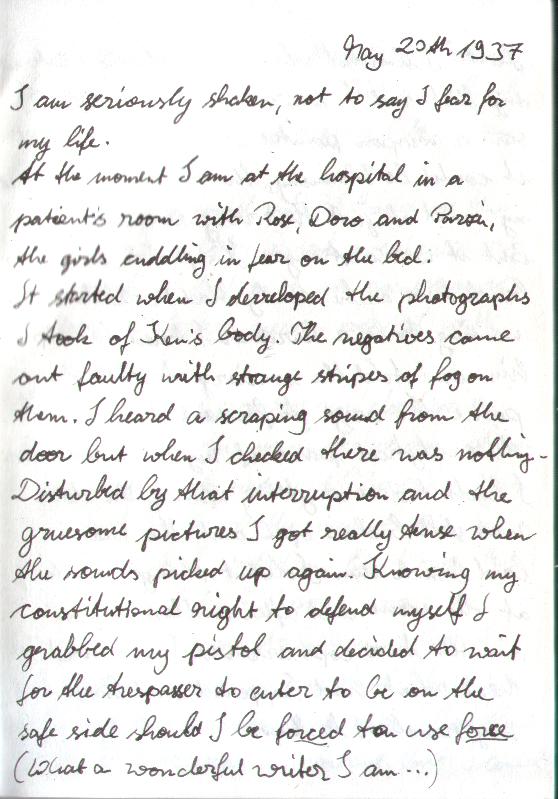 May 20th 1937
I am seriously shaken, not to say I fear for
my life.
At the moment I am at the hospital in a
patient's room with Rose, Doro and
the girls cuddling in fear on the bed.
It started when I developed the photographs
I took of Ken's body. The negatives came
out faulty with strange stripes of fog on
them. I heard a scraping sound from the
door but when I checked there was nothing.
Disturbed by that interruption and the
gruesome pictures I got really tense when
the sounds picked up again. Knowing my
constitutional right to defend myself I
grabbed my pistol and decided to wait
for the trespasser to enter to be on the
safe side should I be forced to use force
(What a wonderful writer I am...)